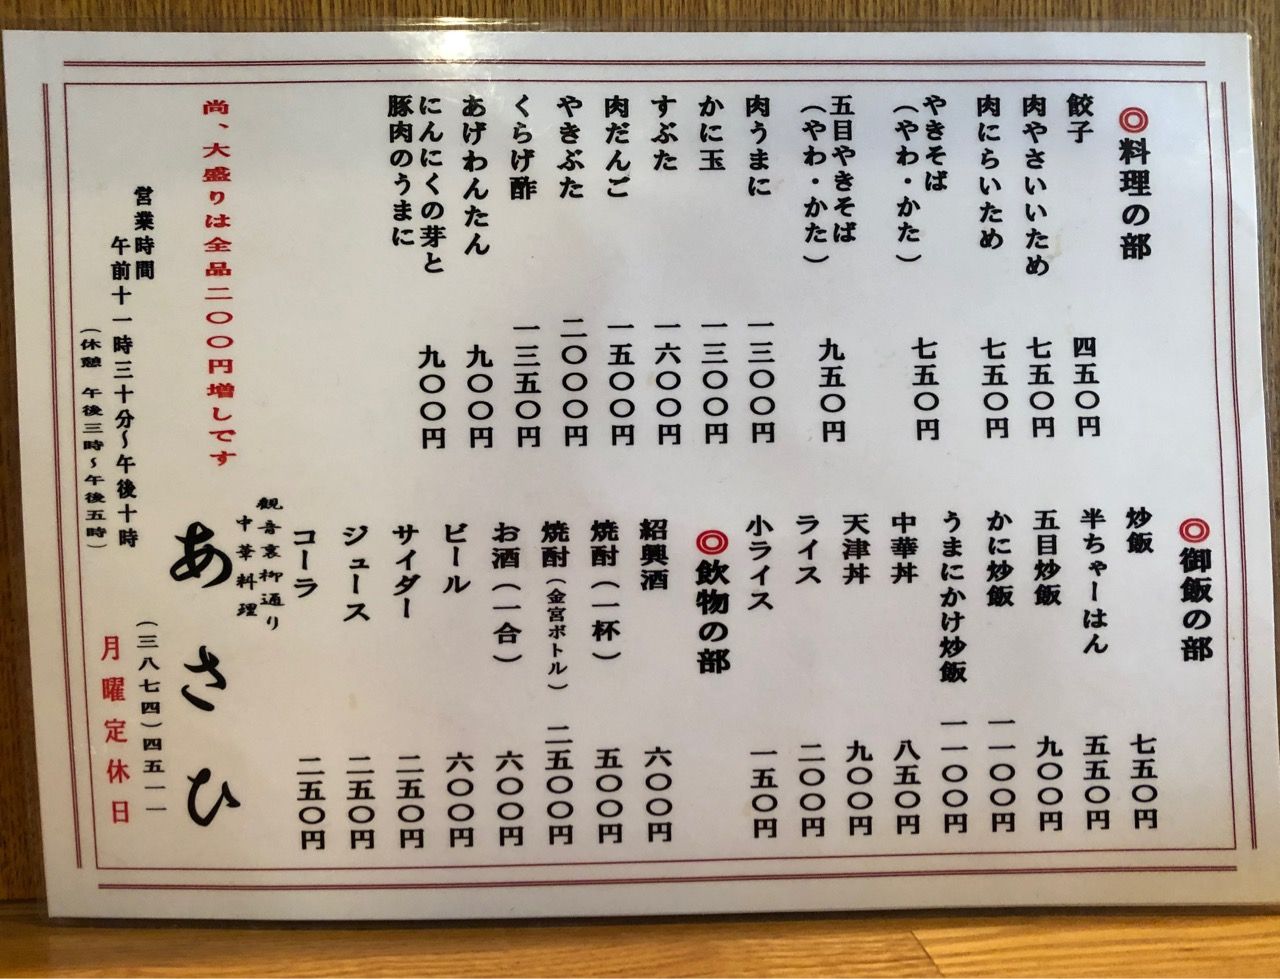 ◎料理の部
餃子 四五〇円
肉やさいいため 七五〇円
肉にらいため 七五〇円
やきそば
（やわ・かた） 七五〇円
五目やきそば
（やわ・かた） 九五〇円
肉うまに 一三〇〇円
かに玉 一三〇〇円
すぶた 一六〇〇円
肉だんご 一五〇〇円
やきぶた 二〇〇〇円
くらげ酢 一三五〇円
あげわんたん 九〇〇円
にんにくの芽と
豚肉のうまに 九〇〇円
◎御飯の部
炒飯 七五〇円
半ちゃーはん 五五〇円
五目炒飯 九〇〇円
かに炒飯 一一〇〇円
うまにかけ炒飯 一一〇〇円
中華丼 八五〇円
天津丼 九〇〇円
ライス 二〇〇円
小ライス 一五〇円
◎飲物の部
紹興酒 六〇〇円
焼酎（一杯） 五〇〇円
焼酎（金宮ボトル） 二五〇〇円
お酒（一合） 六〇〇円
ビール 六〇〇円
サイダー 二五〇円
ジュース 二五〇円
コーラ 二五〇円
尚、大盛りは全品二〇〇円増しです
営業時間
午前十一時三十分～午後十時
（休憩 午後三時～午後五時）
観音裏柳通り
中華料理
あさひ
（三八七四）四五一一
月曜定休日